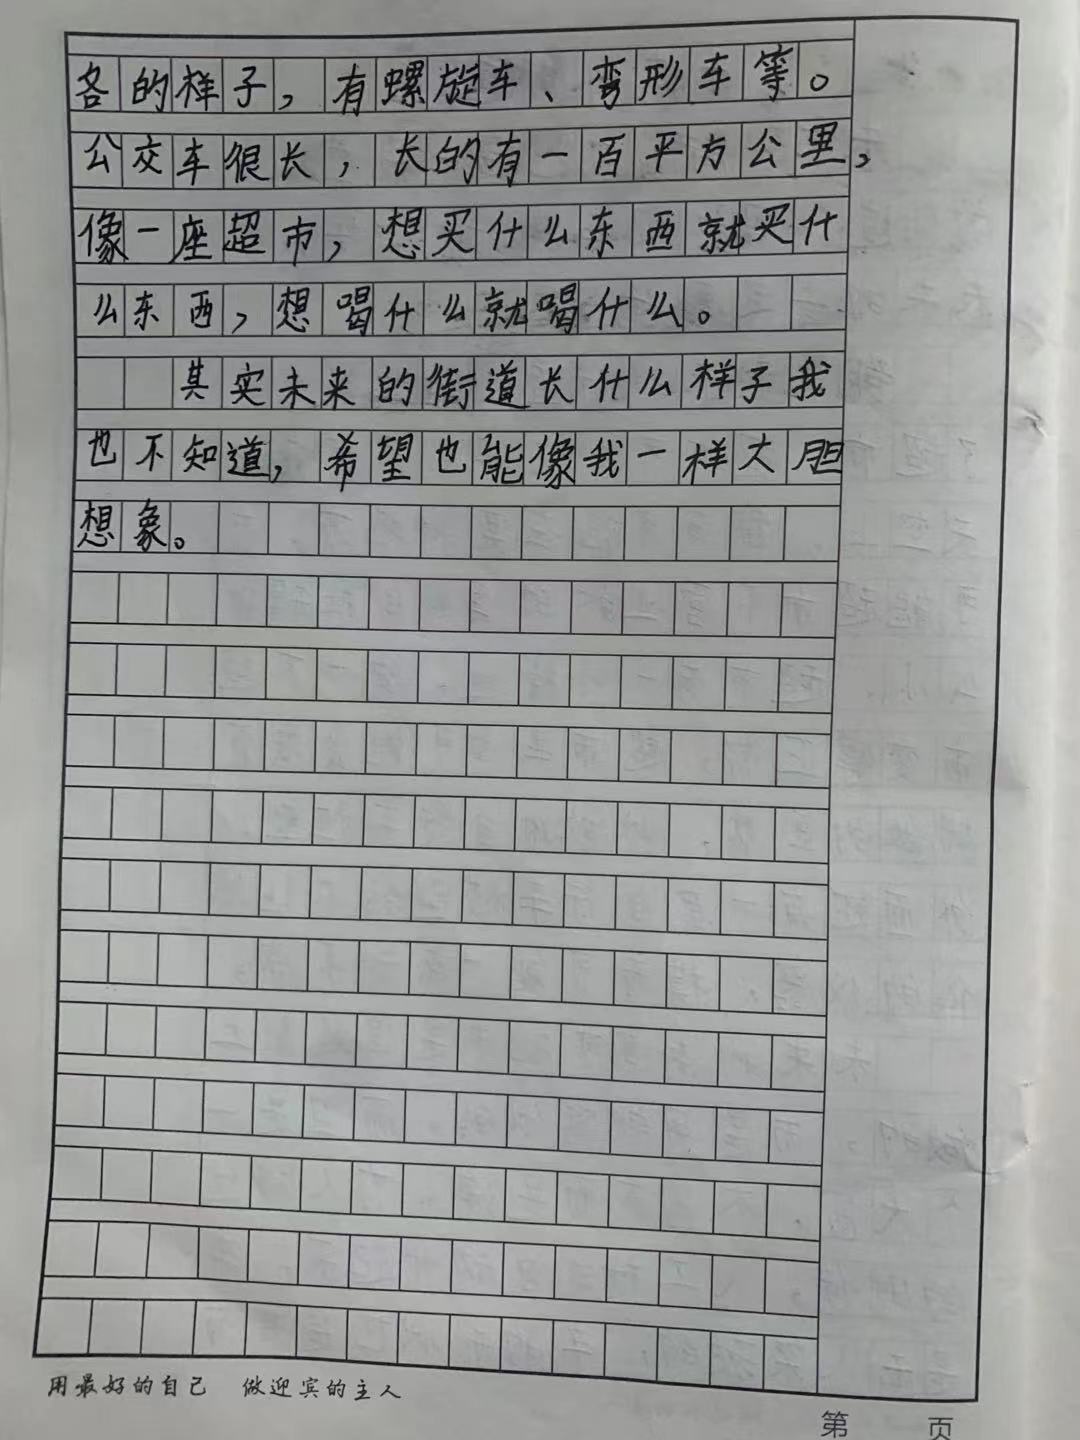 各的样子，有螺旋车、弯形车等。
公交车很长，长的有一百平方公里，
像一座超市，想买什么东西就买什
么东西，想喝什么就喝什么。
其实未来的街道长什么样子我
也不知道，希望也能像我一样大胆
想象。
用最好的自己 做迎宾的主人
第 页